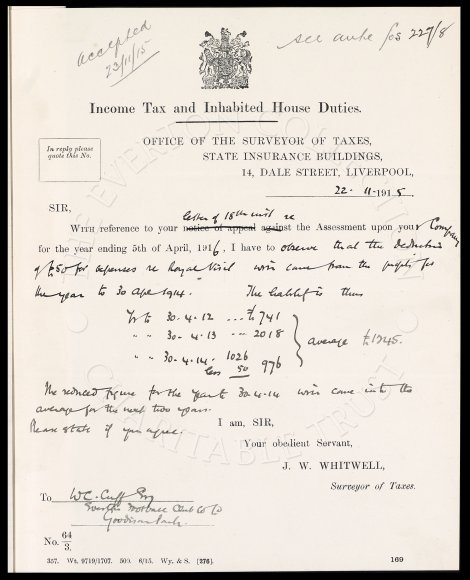 accepted
23/11/15
see ante fos 227/8
Income Tax and Inhabited House Duties.
In reply please
quote this No.
OFFICE OF THE SURVEYOR OF TAXES,
STATE INSURANCE BUILDINGS,
14, DALE STREET, LIVERPOOL,
22 - 11 - 1915
SIR,
letter of 18th inst re
WITH reference to your notice of appeal against the Assessment upon your Company
for the year ending 5th of April, 1916, I have to observe that the deduction
of £50 for expenses re Royal Visit will come from the profits for
the year to 30 Apl 1914. The liability is thus
Yr to 30.4.12 ... £741
" " 30.4.13 ... 2018
" " 30.4.14. 1026
less 50 976
average £1245.
The reduced figure for the year to 30.4.14 will come into the
average for the next two years.
Please state if you agree.
I am, SIR,
Your obedient Servant,
J. W. WHITWELL,
Surveyor of Taxes.
To W.C. Cuff Esq
Everton Football Club Co Ld
Goodison Park
No. 64/3.
357. Wt. 9719/1707. 500. 6/15. Wy. & S. [276]
169
EVERTON COLLECTION
CHARITABLE TRUST